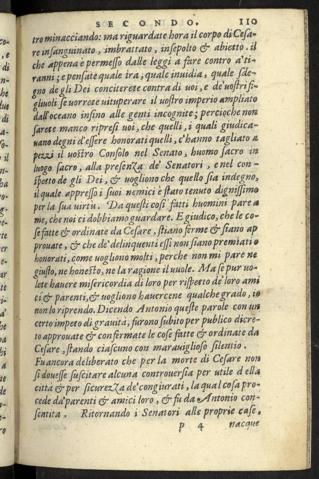 SECONDO. 110
tro minacciando: ma riguardate hora il corpo di Cesa-
re insanguinato, imbrattato, insepolto & abietto. il
che appena è permesso dalle leggi a fare contro a'ti-
ranni; e pensate quale ira, quale inuidia, quale sde-
gno de gli Dei conciterete contra di uoi, e de' uostri fi-
gliuoli se uorrete uituperare il uostro imperio ampliato
dall'oceano insino alle genti incognite; percioche non
sarete manco ripresi uoi, che quelli, i quali giudica-
uano degni d'essere honorati quelli, c'hanno tagliato a
pezzi il uostro Consolo nel Senato, huomo sacro in
luogo sacro, alla presenza de' Senatori, e nel con-
spetto de gli Dei, & uogliono che quello sia indegno,
il quale appresso i suoi nemici è stato tenuto dignissimo
per la sua uirtu. Da questi cosi fatti huomini pare a
me, che noi ci dobbiamo guardare. E giudico, che le co-
se fatte & ordinate da Cesare, stiano ferme & siano ap
prouate, & che de' delinquenti essi non siano premiati o
honorati, come uogliono molti, perche non mi pare ne
giusto, ne honesto, ne la ragione il uuole. Ma se pur uo-
lete hauere misericordia di loro per rispetto de'loro ami
ci & parenti, & uogliono hauercene qualche grado, io
non lo riprendo. Dicendo Antonio queste parole con un
certo impeto di grauità, furono subito per publico dicre-
to approuate & confermate le cose fatte & ordinate da
Cesare, stando ciascuno con marauiglioso silentio.
Fu ancora deliberato che per la morte di Cesare non
si douesse suscitare alcuna controuersia per utile d'ella
città & per sicurezza de'congiurati, la qual cosa pro-
cede da'parenti & amici loro, & fu da Antonio con-
sentita. Ritornando i Senatori alle proprie case,
P 4 nacque